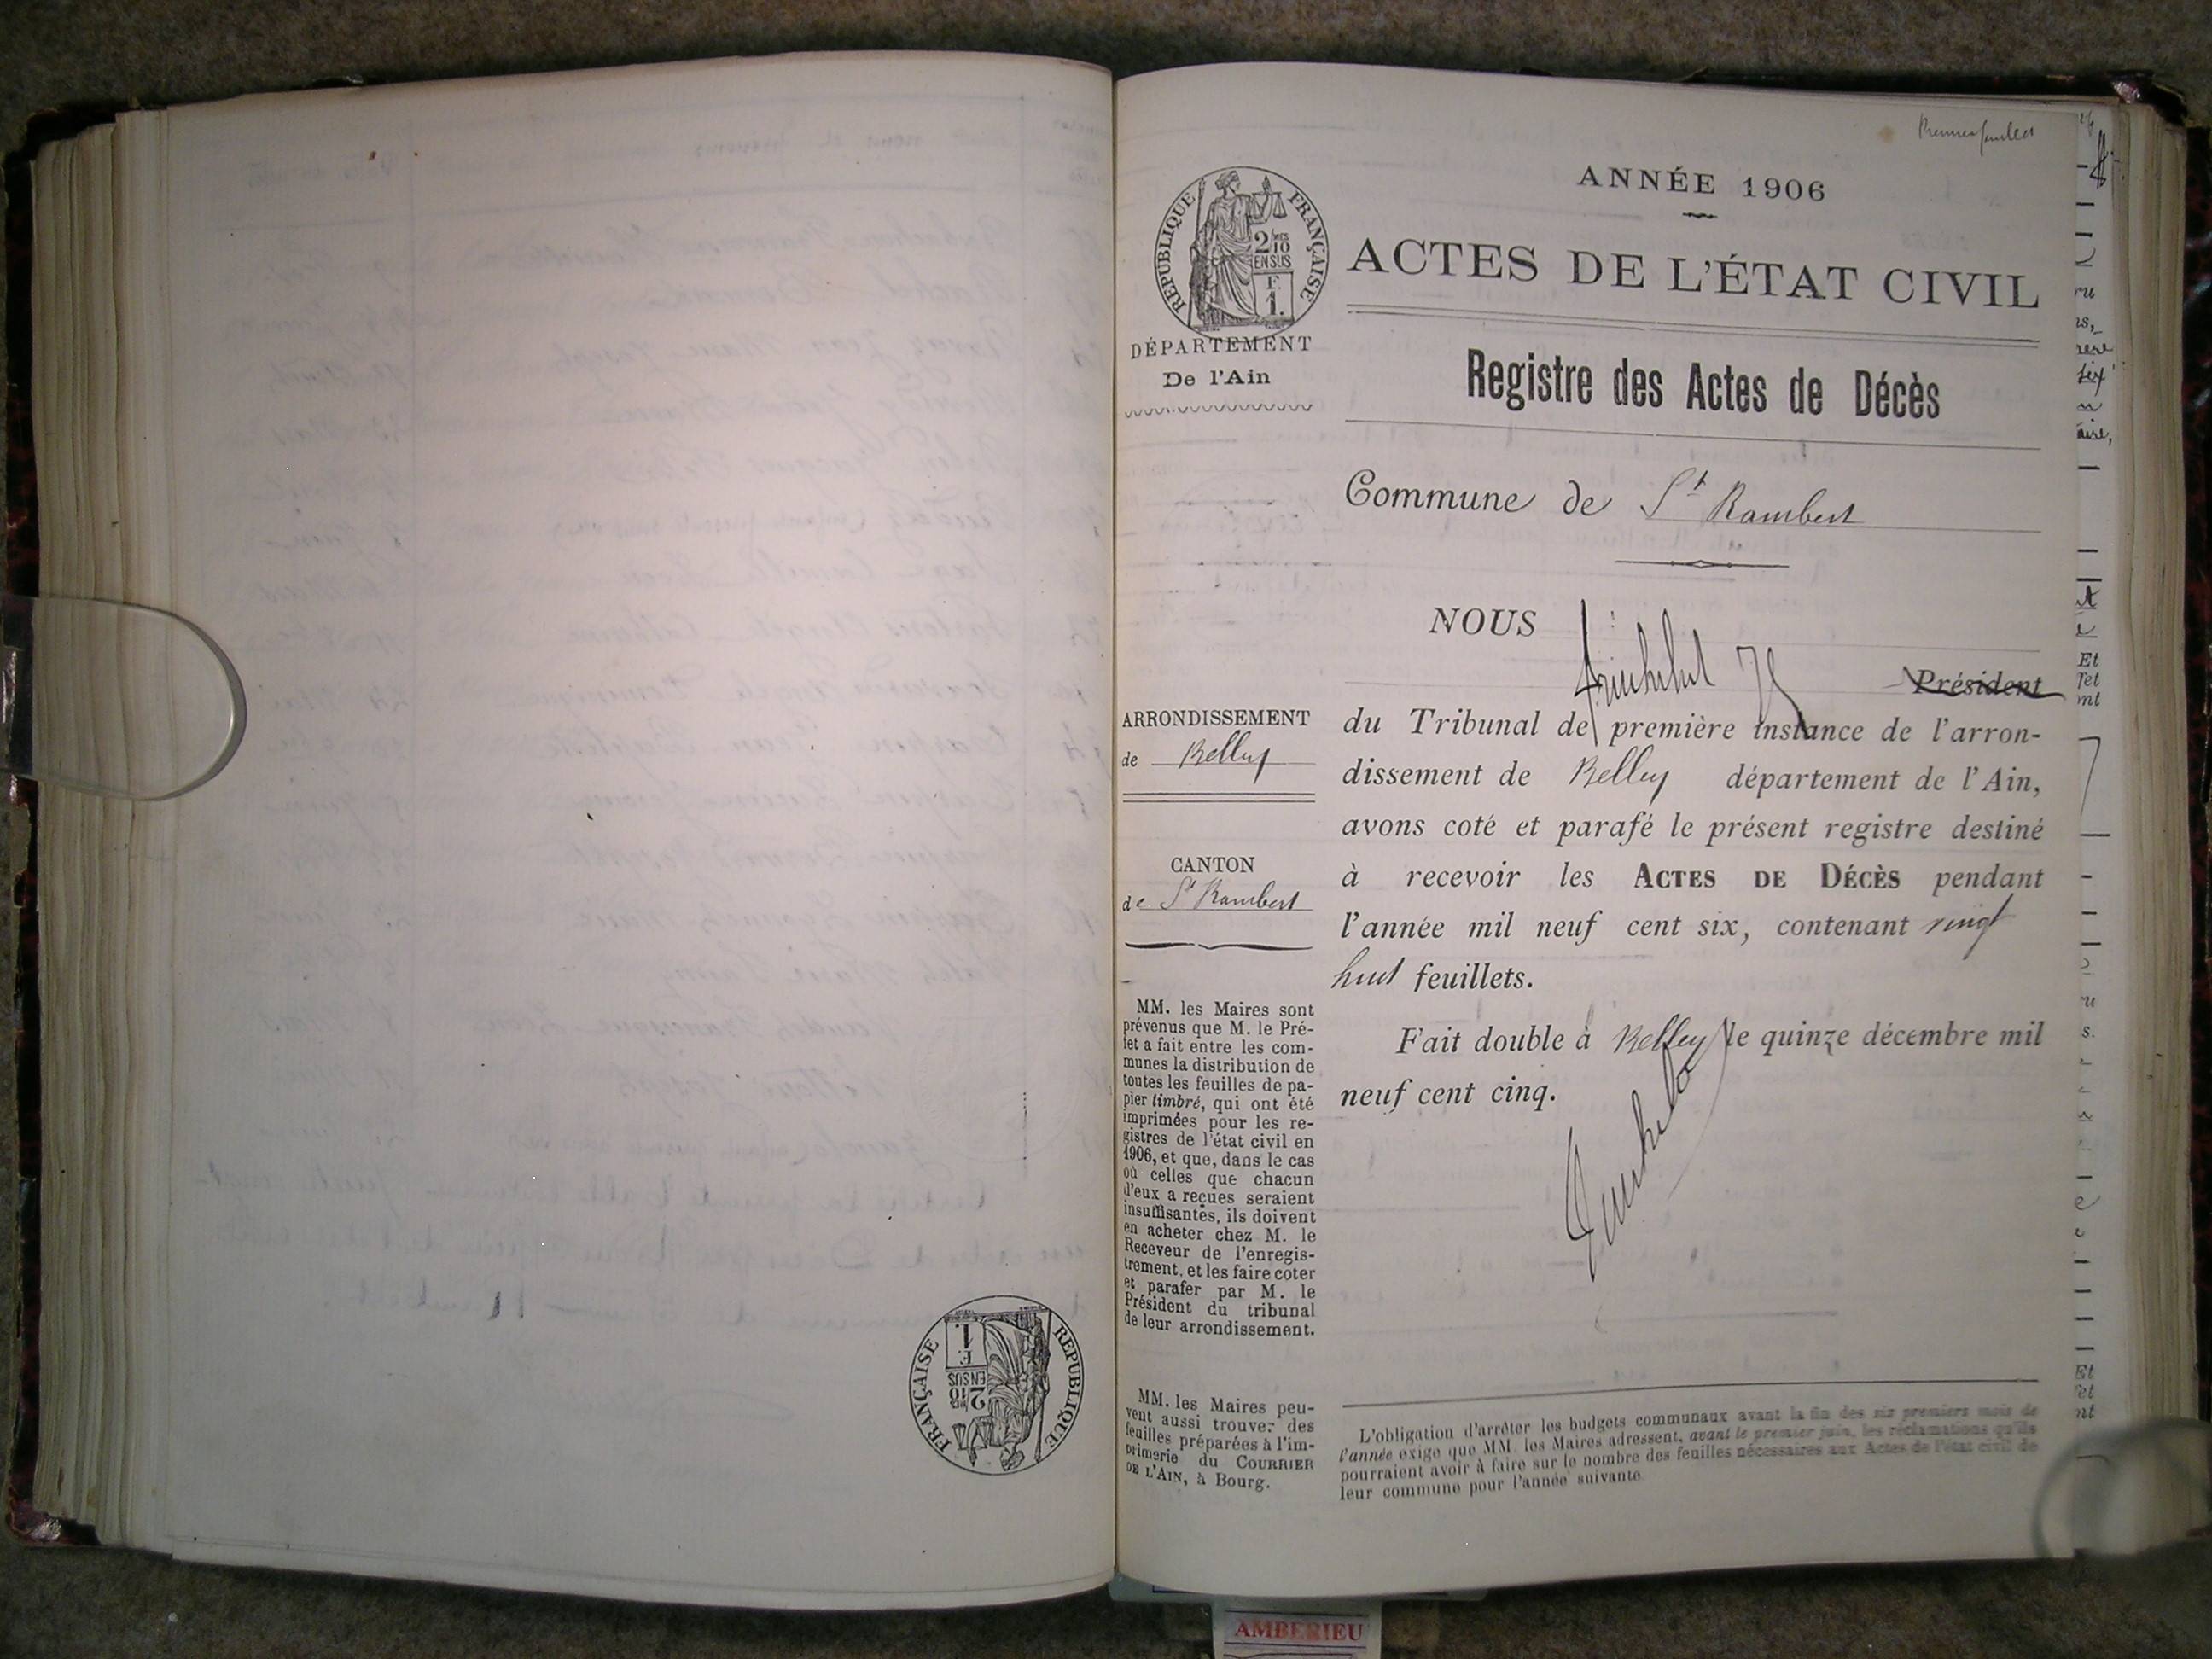 Premier feuillet
ANNÉE 1906
RÉPUBLIQUE FRANÇAISE
2/10 EN SUS
F. 1.
ACTES DE L'ÉTAT CIVIL
DÉPARTEMENT
De l'Ain
Registre des Actes de Décès
Commune de St Rambert
NOUS
Président
ARRONDISSEMENT
de Belley
du Tribunal de première instance de l'arron-
dissement de Belley département de l'Ain,
avons coté et parafé le présent registre destiné
à recevoir les ACTES DE DÉCÈS pendant
l'année mil neuf cent six, contenant vingt
huit feuillets.
Fait double à Belley le quinze décembre mil
neuf cent cinq.
CANTON
de St Rambert
MM. les Maires sont
prévenus que M. le Pré-
fet a fait entre les com-
munes la distribution de
toutes les feuilles de pa-
pier timbré, qui ont été
imprimées pour les re-
gistres de l'état civil en
1906, et que, dans le cas
où celles que chacun
d'eux a reçues seraient
insuffisantes, ils doivent
en acheter chez M. le
Receveur de l'enregis-
trement, et les faire coter
et parafer par M. le
Président du tribunal
de leur arrondissement.
MM. les Maires peu-
vent aussi trouver des
feuilles préparées à l'im-
primerie du COURRIER
DE L'AIN, à Bourg.
L'obligation d'arrêter les budgets communaux avant la fin des six premiers mois de
l'année exige que MM. les Maires adressent, avant le premier juin, les réclamations qu'ils
pourraient avoir à faire sur le nombre des feuilles nécessaires aux Actes de l'état civil de
leur commune pour l'année suivante
RÉPUBLIQUE FRANÇAISE
2/10 EN SUS
F. 1.
AMBERIEU